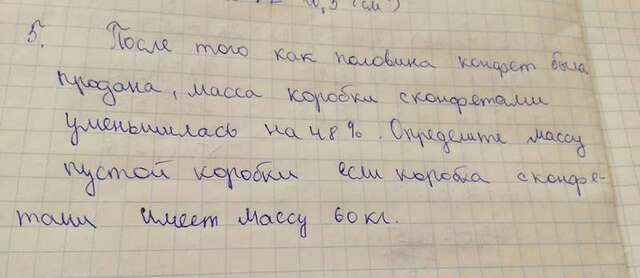 5. После того как половина конфет была
продана, масса коробки с конфетами
уменьшилась на 48%. Определите массу
пустой коробки если коробка с конфе-
тами имеет массу 60 кг.